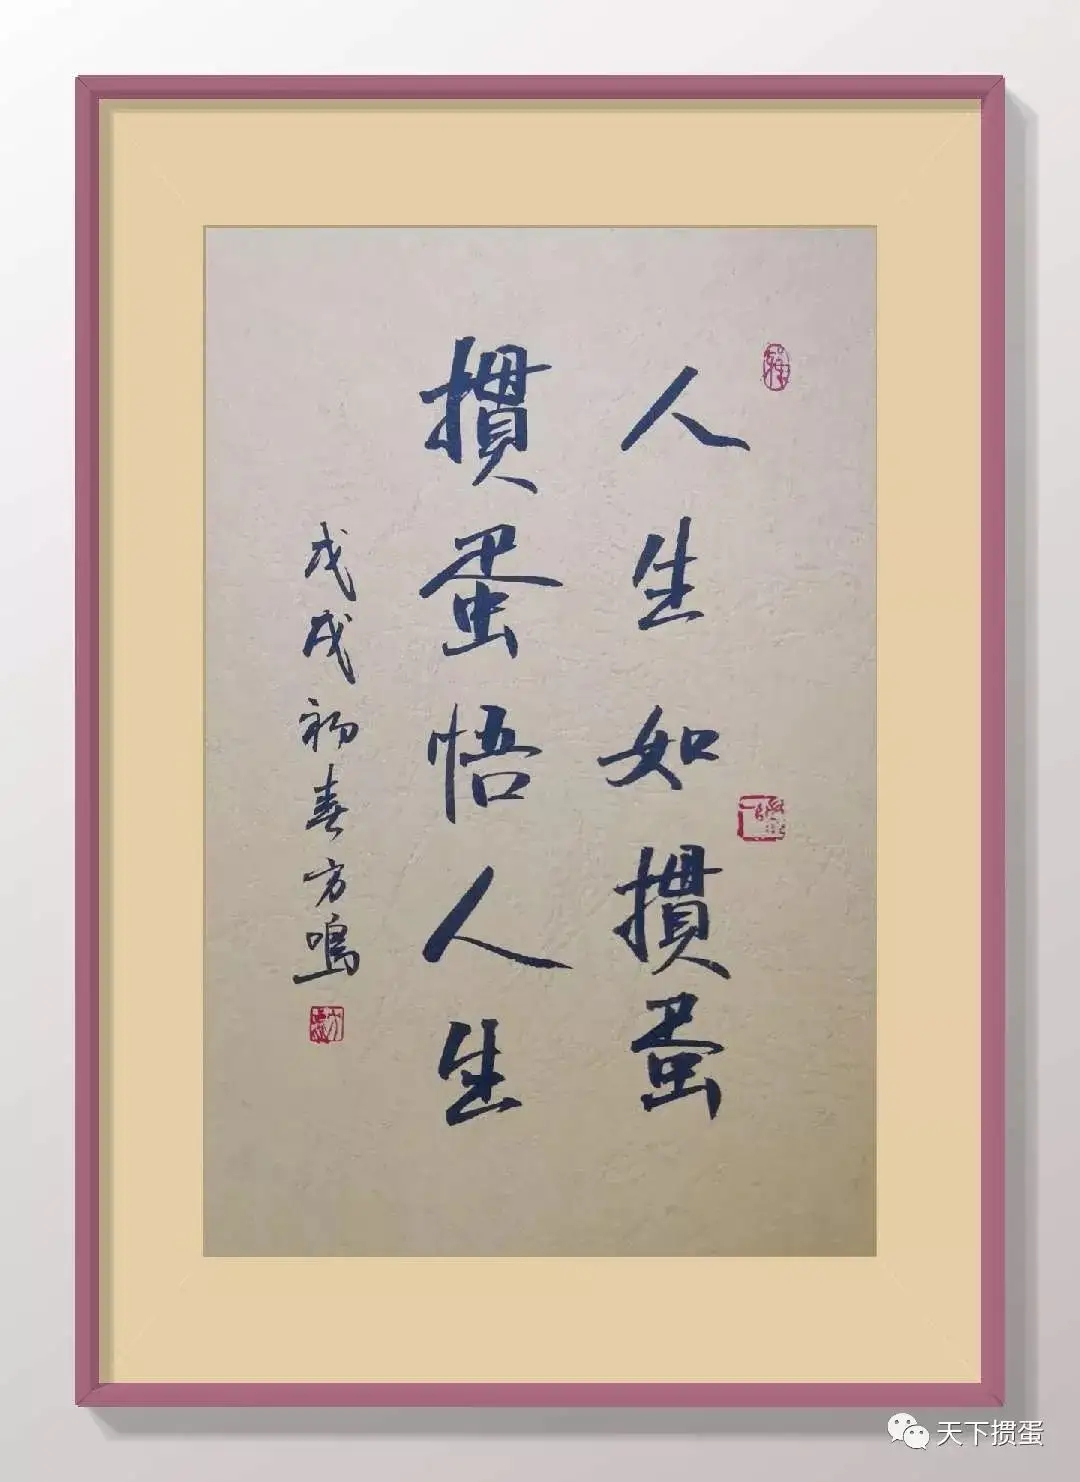 人生如掼蛋
掼蛋悟人生
戊戌初春方鸣
天下掼蛋